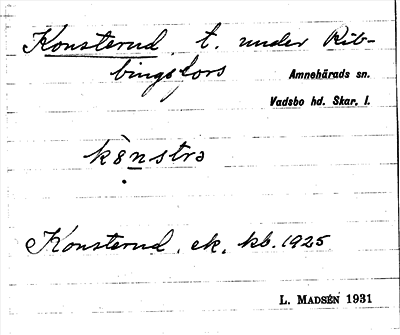 Konsterud, t. under Rib-
bingsfors
Amnehärads sn.
Vadsbo hd. Skar. l.
kò̀nstrə
Konsterud, ek. kb. 1925
L. MADSÉN 1931